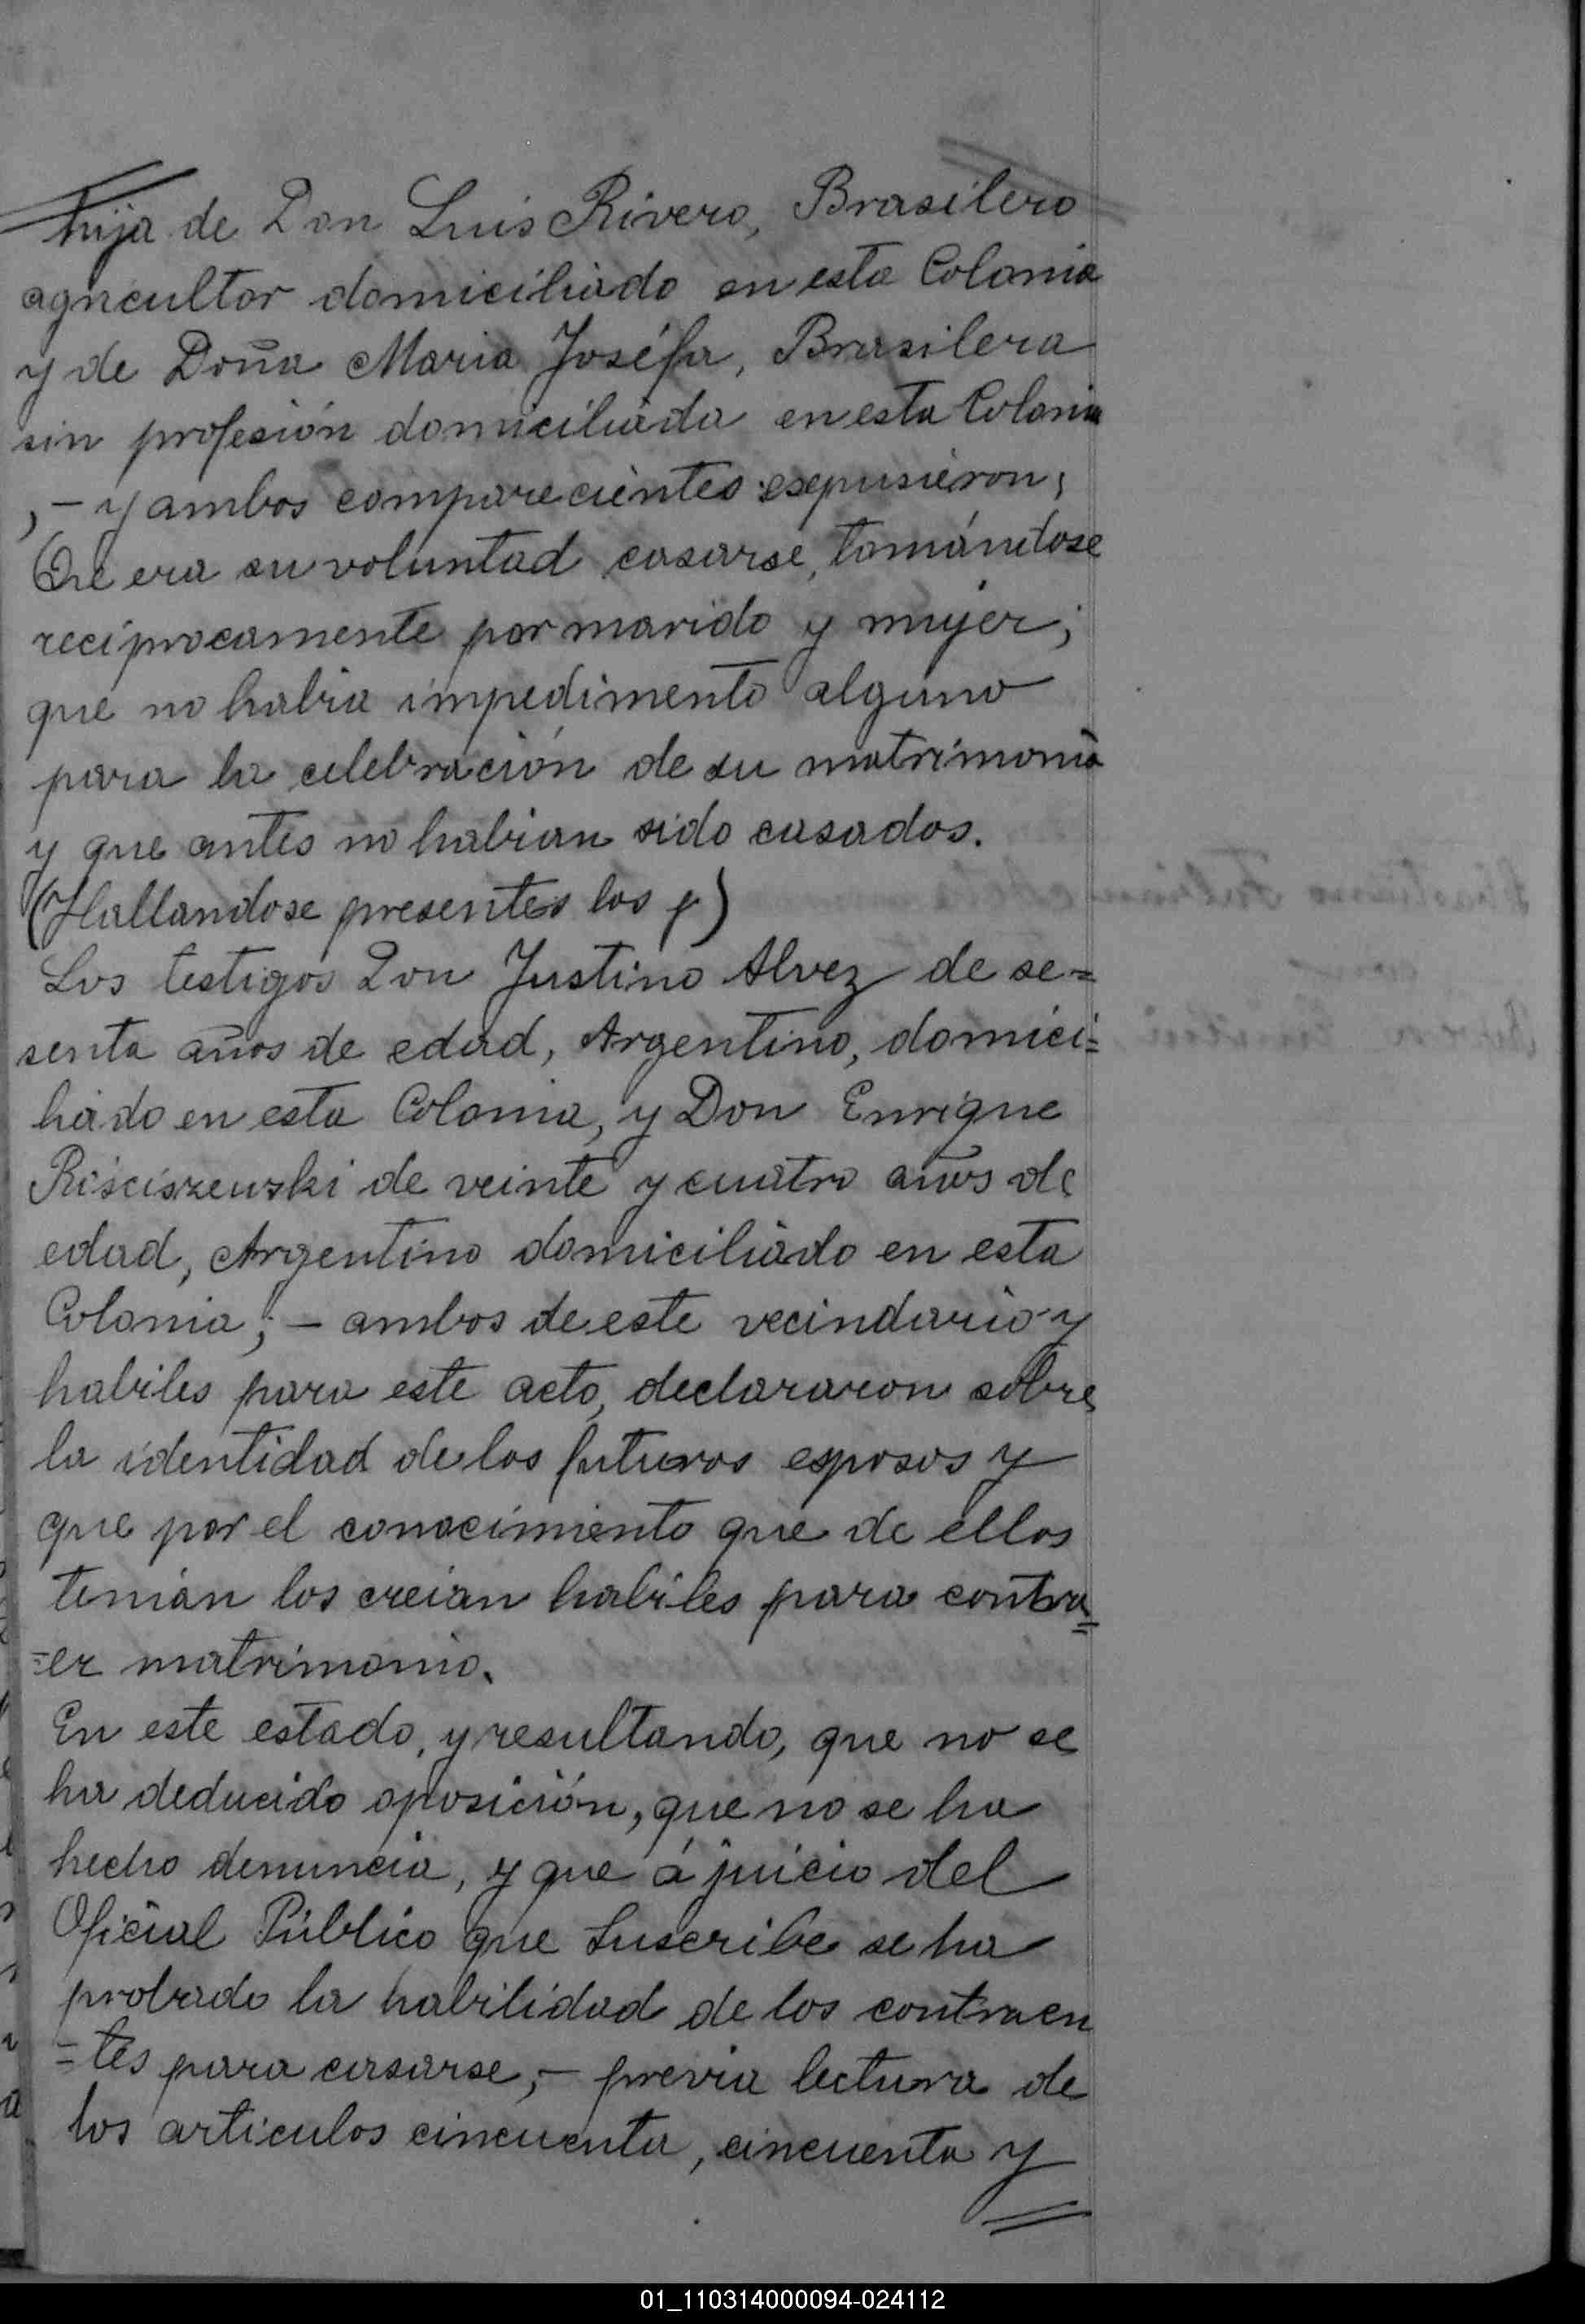 hija de Don Luis Rivero, Brasilero
agricultor domiciliado en esta Colonia
y de Doña Maria Joséfa, Brasilera
sin profesión domiciliada en esta Colonia
,- y ambos comparecientes esepusieron;
Que era su voluntad casarse, tomándose
reciprocamente por marido y mujer;
que no habia impedimento alguno
para la celebración de su matrimonio
y que antes no habian sido casados.
(Hallandose presentes los y)
Los testigos Don Justino Alvez de se=
senta años de edad, Argentino, domici=
liado en esta Colonia, y Don Enrique
Risciszewski de veinte y cuatro años de
edad, Argentino domiciliado en esta
Colonia; - ambos de este vecindario y
habiles para este acto, declararon sobre
la identidad de los futuros esposos y
que por el conocimiento que de ellos
tenian los creian habiles para contra=
=er matrimonio.
En este estado, y resultando, que no se
ha deducido oposición, que no se ha
hecho denuncia, y que á juicio del
Oficial Público que Suscribe se ha
probado la habilidad de los contraen
=tes para casarse;- previa lectura de
los articulos cincuenta, cincuenta y
01_110314000094-024112